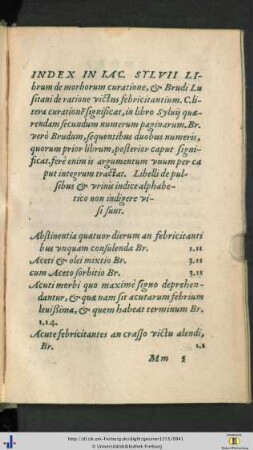 INDEX IN IAC. SYLVII LI-
brum de morborum curatione, & Brudi Lu
sitani de ratione victus febricitantium. C. li-
tera curationẽ significat, in libro Syluij quæ-
rendam secundum numerum paginarum. Br.
verò Brudum, sequentibus duobus numeris,
quorum prior librum, posterior caput signi-
ficat. ferè enim is argumentum vnum per ca
put integrum tractat. Libelli de pul-
sibus & vrinis indice alphabe-
tico non indigere vi-
si sunt.
Abstinentia quatuor dierum an febricitanti
bus vnquam consulenda Br. 1.11
Aceti & olei mixtio Br. 3.11
cum Aceto sorbitio Br. 3.11
Acuti morbi quo maximè signo deprehen-
dantur, & quæ nam sit acutarum febrium
leuißima, & quem habeat terminum Br.
1.14.
Acute febricitantes an crasso victu alendi,
Br. 1.2
Mm
http://dl.ub.uni-freiburg.de/diglit/gesner1555/0941
© Universitätsbibliothek Freiburg